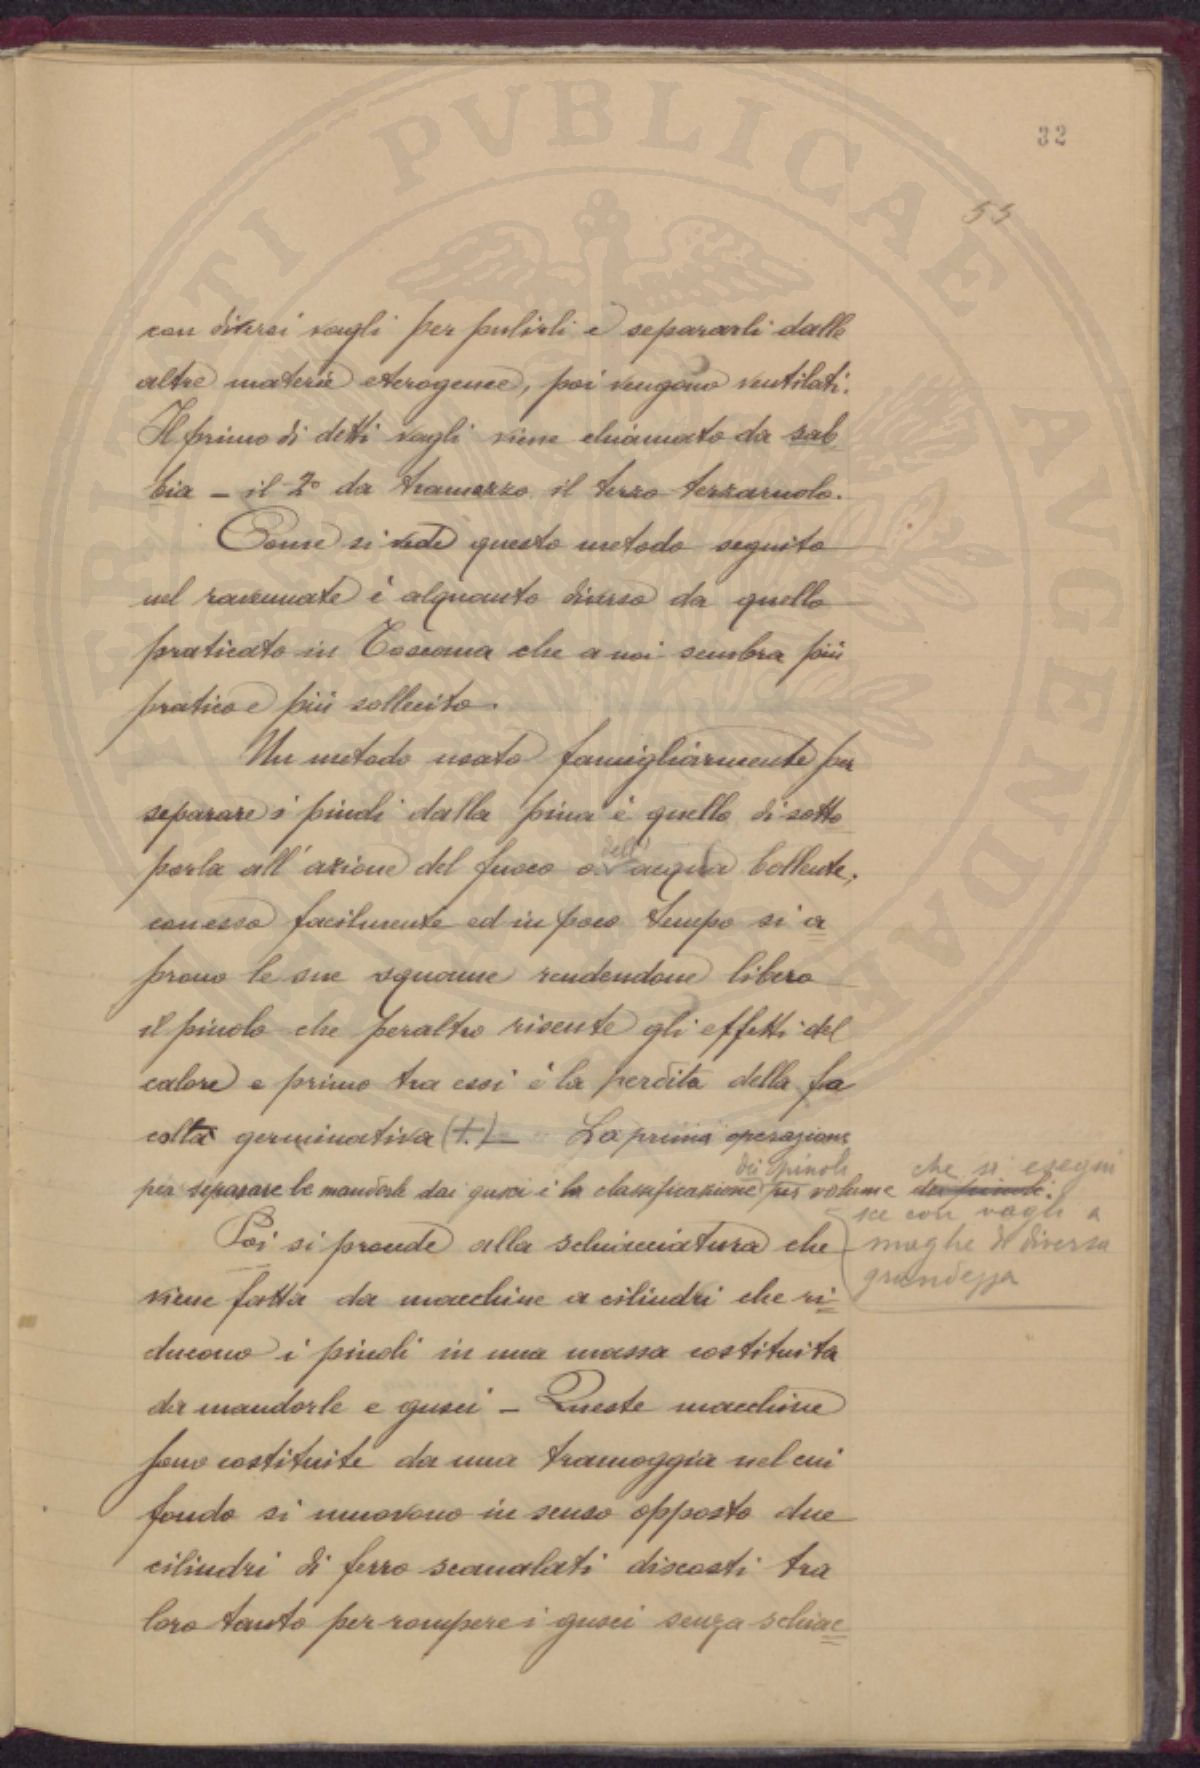 PVBLICAE
AVGENDAE
32
55
con diversi vagli per pulirli e separarli dalle
altre materie eterogenee, poi vengono ventilati.
Il primo di detti vagli viene chiamato da sab
bia - il 2° da tramezzo il terzo terzaruolo.
Come si vede questo metodo seguito
nel ravennate è alquanto diverso da quello
praticato in Toscana che a noi sembra più
pratico e più sollecito.
Un metodo usato famigliarmente per
separare i pinoli dalla pina è quello di sotto
porla all'azione del fuoco o dell' acqua bollente,
con esso facilmente ed in poco tempo si a
prono le sue squame rendendone libero
il pinolo che peraltro risente gli effetti del
calore e primo tra essi è la perdita della fa
coltà germinativa (1.) - La prima operazione
per separare le mandorle dai gusci è la classificazione dei pinoli per volume dei pinoli.
che si esegui
sce con vagli a
maglie di diversa
grandezza
Poi si procede alla schiacciatura che
viene fatta da macchine a cilindri che ri
ducono i pinoli in una massa costituita
da mandorle e gusci - Queste macchine
sono costituite da una tramoggia nel cui
fondo si muovono in senso opposto due
cilindri di ferro scanalati discosti tra
loro tanto per rompere i gusci senza schiac